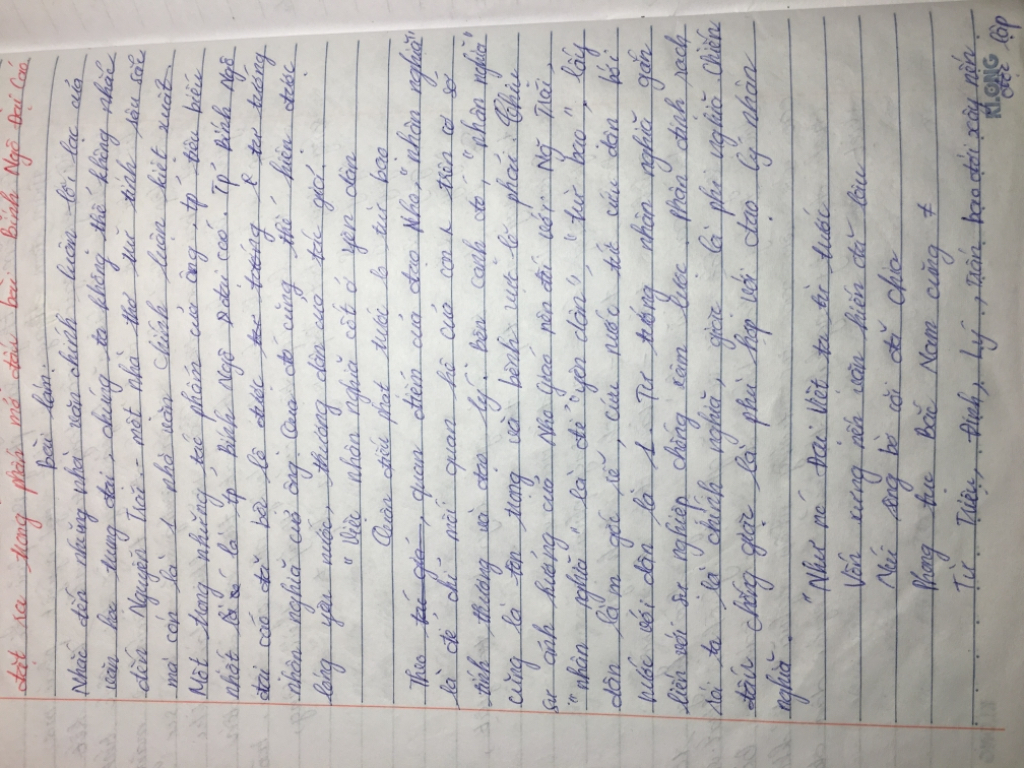 đặt ra trong phần mở đầu bài Bình Ngô Đại Cáo
Nhắc đến những nhà văn chính luận lỗi lạc của
văn học trung đại chúng ta không thể không nhắc
đến Nguyễn Trãi - một nhà thơ trữ tình sâu sắc
mà còn là 1 nhà văn chính luận kiệt xuất.
Một trong những tác phẩm của ông, tp tiêu biểu
nhất là tp Bình Ngô Đại cáo. Tp Bình Ngô
đại cáo đã bộc lộ được tư tưởng
nhân nghĩa của ông. Qua đó cũng thể hiện được
lòng yêu nước, thương dân của tác giả.
"Việc nhân nghĩa cốt ở yên dân
Quân điếu phạt trước lo trừ bạo
Theo quan điểm của đạo Nho, "nhân nghĩa"
là để chỉ mối quan hệ của con trên cơ sở
tình thương và đạo lý. Bên cạnh đó, "nhân nghĩa"
cũng là tôn trọng và bênh vực lẽ phải. Chịu
sự ảnh hưởng của Nho giáo nên đối với Ng Trãi,
"nhân nghĩa" là để "yên dân", "trừ bạo", lấy
dân làm gốc rễ, cứu nước để cứu dân bởi
nước với dân là 1. Tư tưởng nhân nghĩa gắn
liền với sự nghiệp chống xâm lược phân định rạch
ròi ta là chính nghĩa, giặc là phi nghĩa. Chiến
đấu chống giặc là phù hợp với đạo lý nhân
nghĩa.
"Như nc Đại Việt ta từ trước
Vốn xưng nền văn hiến đã lâu
Núi sông bờ cõi đã chia
Phong tục Bắc Nam cũng ≠
Từ Triệu, Đinh, Lý, Trần bao đời xây nền độc lập
KLONG